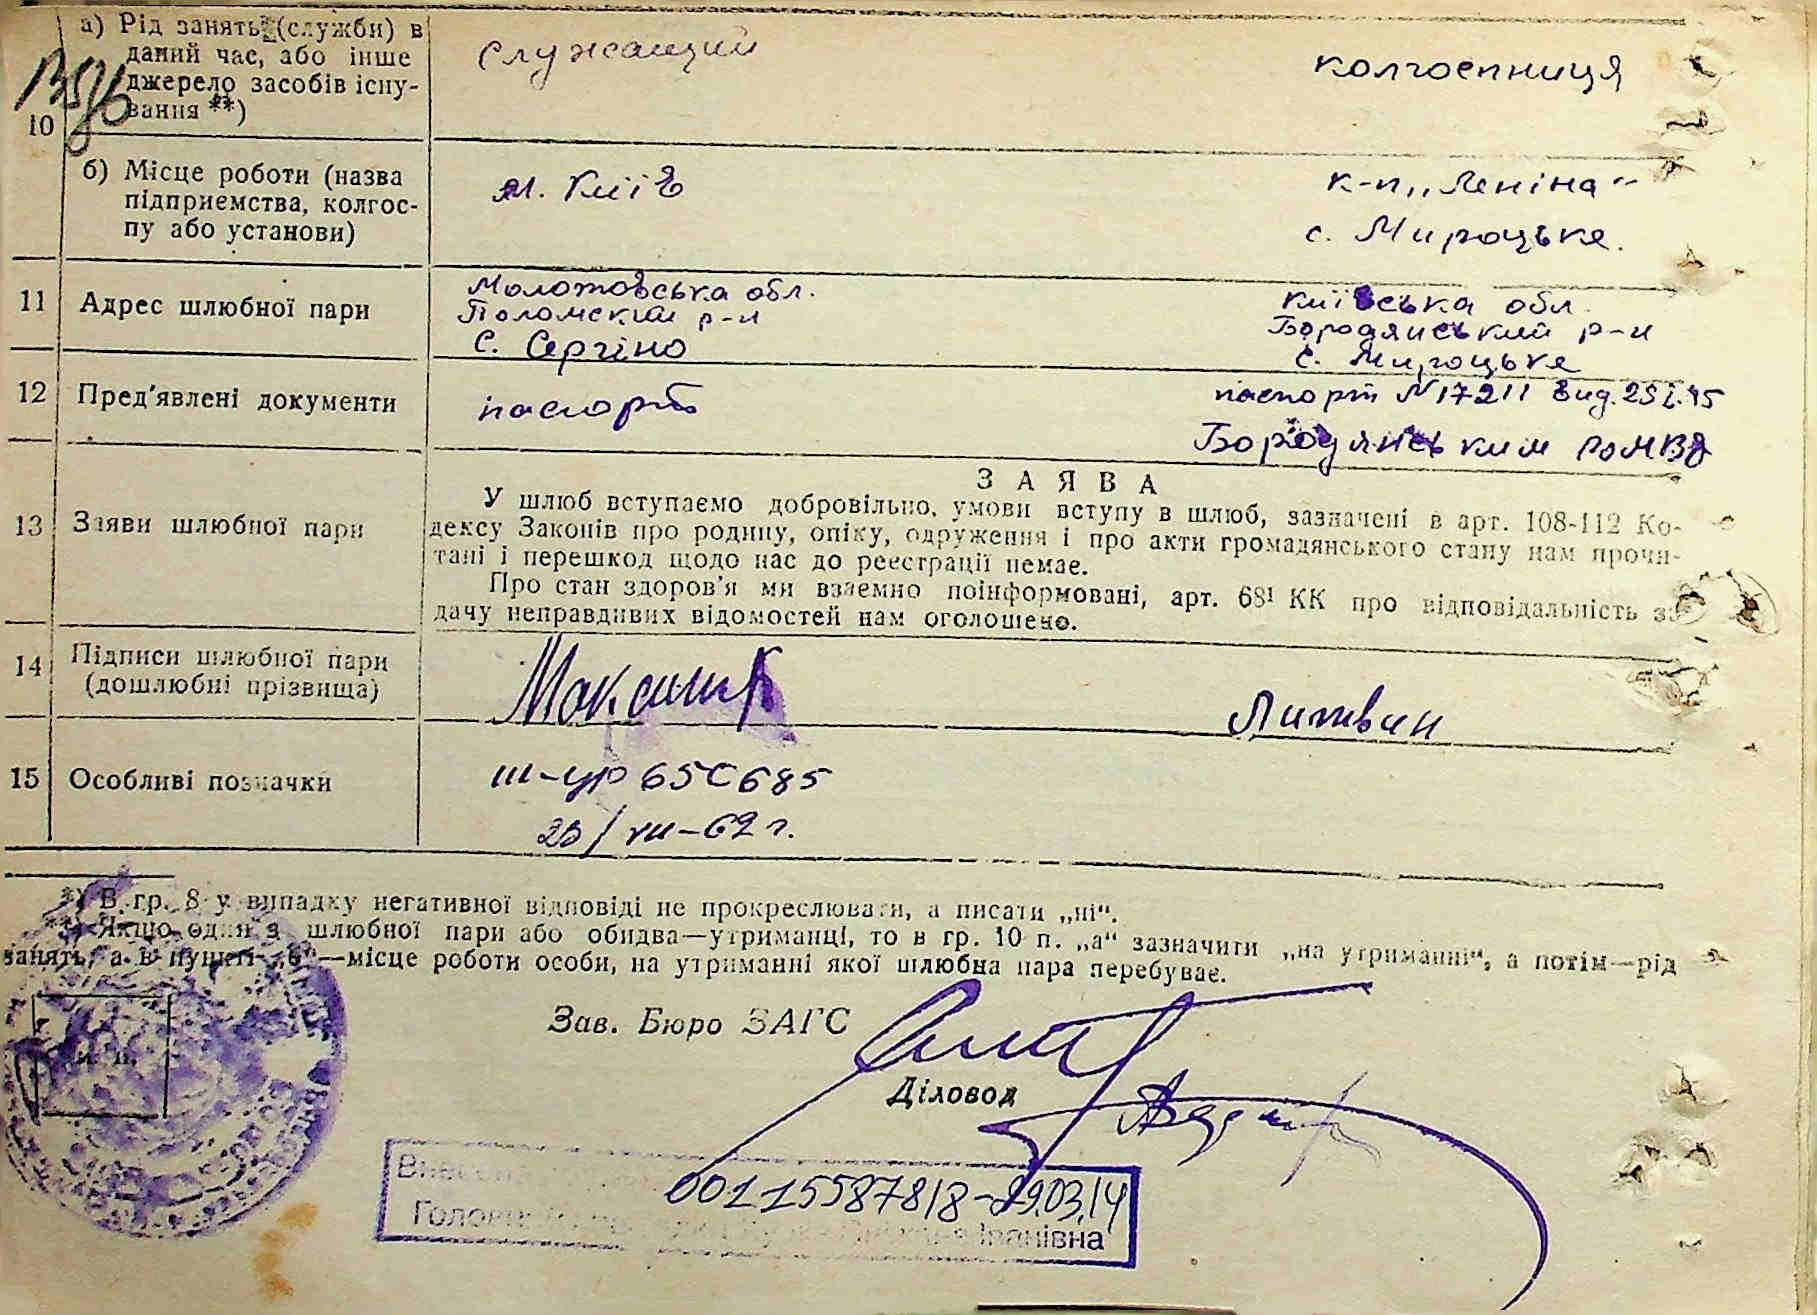 а) Рід занять (служби) в
даний час, або інше
джерело засобів існу-
вання **)
10
служащий
колгоспниця
б) Місце роботи (назва
підприємства, колгос-
пу або установи)
м. Київ
к-п „Леніна"
с. Мироцьке.
11 Адрес шлюбної пари
Молотовська обл.
р-н
с. Сергіно
Київська обл.
Бородянський р-н
с. Мироцьке
12 Пред'явлені документи
паспорт
паспорт N 17211 вид.
Бородянським РОМВД
13 Заяви шлюбної пари
ЗАЯВА
У шлюб вступаемо добровільно, умови вступу в шлюб, зазначені в арт. 108-112 Ко-
дексу Законів про родину, опіку, одруження і про акти громадянського стану нам прочи-
тані і перешкод щодо нас до реестрації немае.
Про стан здоров'я ми взаемно поінформовані, арт. 68¹ КК про відповідальність за
дачу неправдивих відомостей нам оголошено.
14 Підписи шлюбної пари
(дошлюбні прізвища)
Литвин
15 Особливі позначки
65 685
-62 г.
*) В гр. 8 у випадку негативної відповіді не прокреслювати, а писати „ні".
**) Якщо один з шлюбної пари або обидва—утриманці, то в гр. 10 п. „а" зазначити „на утриманні", а потім—рід
занять, а в пункті „б"—місце роботи особи, на утриманні якої шлюбна пара перебувае.
Зав. Бюро ЗАГС
Діловод
00115587818-29.03.14
Іванівна